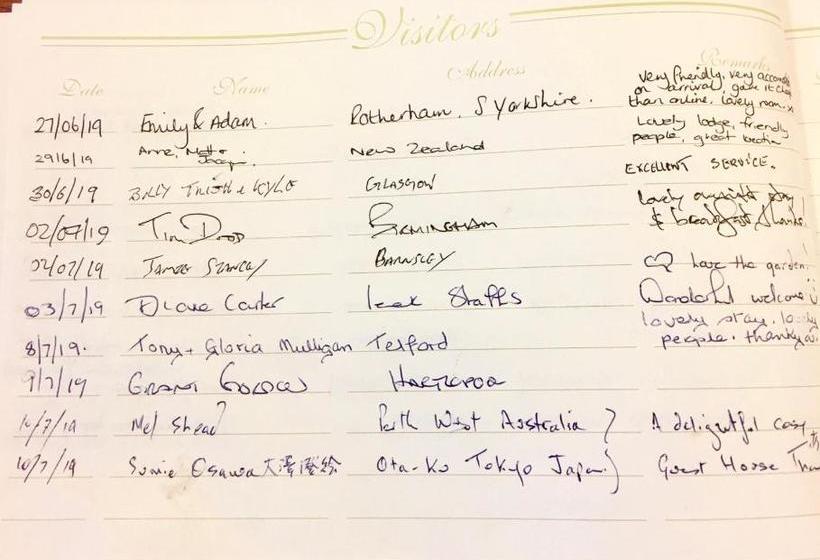 Visitors
Date Name Address Remarks
very friendly, very accom
on arrival, gave it cheap
than online, lovely room. x
27/06/19 Emily & Adam. Rotherham. S Yorkshire.
Lovely lodge, friendly
people, great
29/6/19 Anne, New Zealand
30/6/19 BILLY KYLE GLASGOW EXCELLENT SERVICE.
lovely stay
& breakfast Thanks.
02/07/19 Tim Dodd BIRMINGHAM
02/07/19 JAMES STANLEY BARNSLEY love the garden.
03/7/19 Diane Carter leek Staffs Wonderful welcome
lovely stay. lovely
people. thankyou.
8/7/19. Tony + Gloria Mulligan Telford
9/7/19 GRANT HARTLEPOOL
10/7/19 Mel Shead Perth West Australia } A delightful cosy
10/7/19 Sumie Osawa 大澤澄絵 Ota-ku Tokyo Japan. } Guest House Than